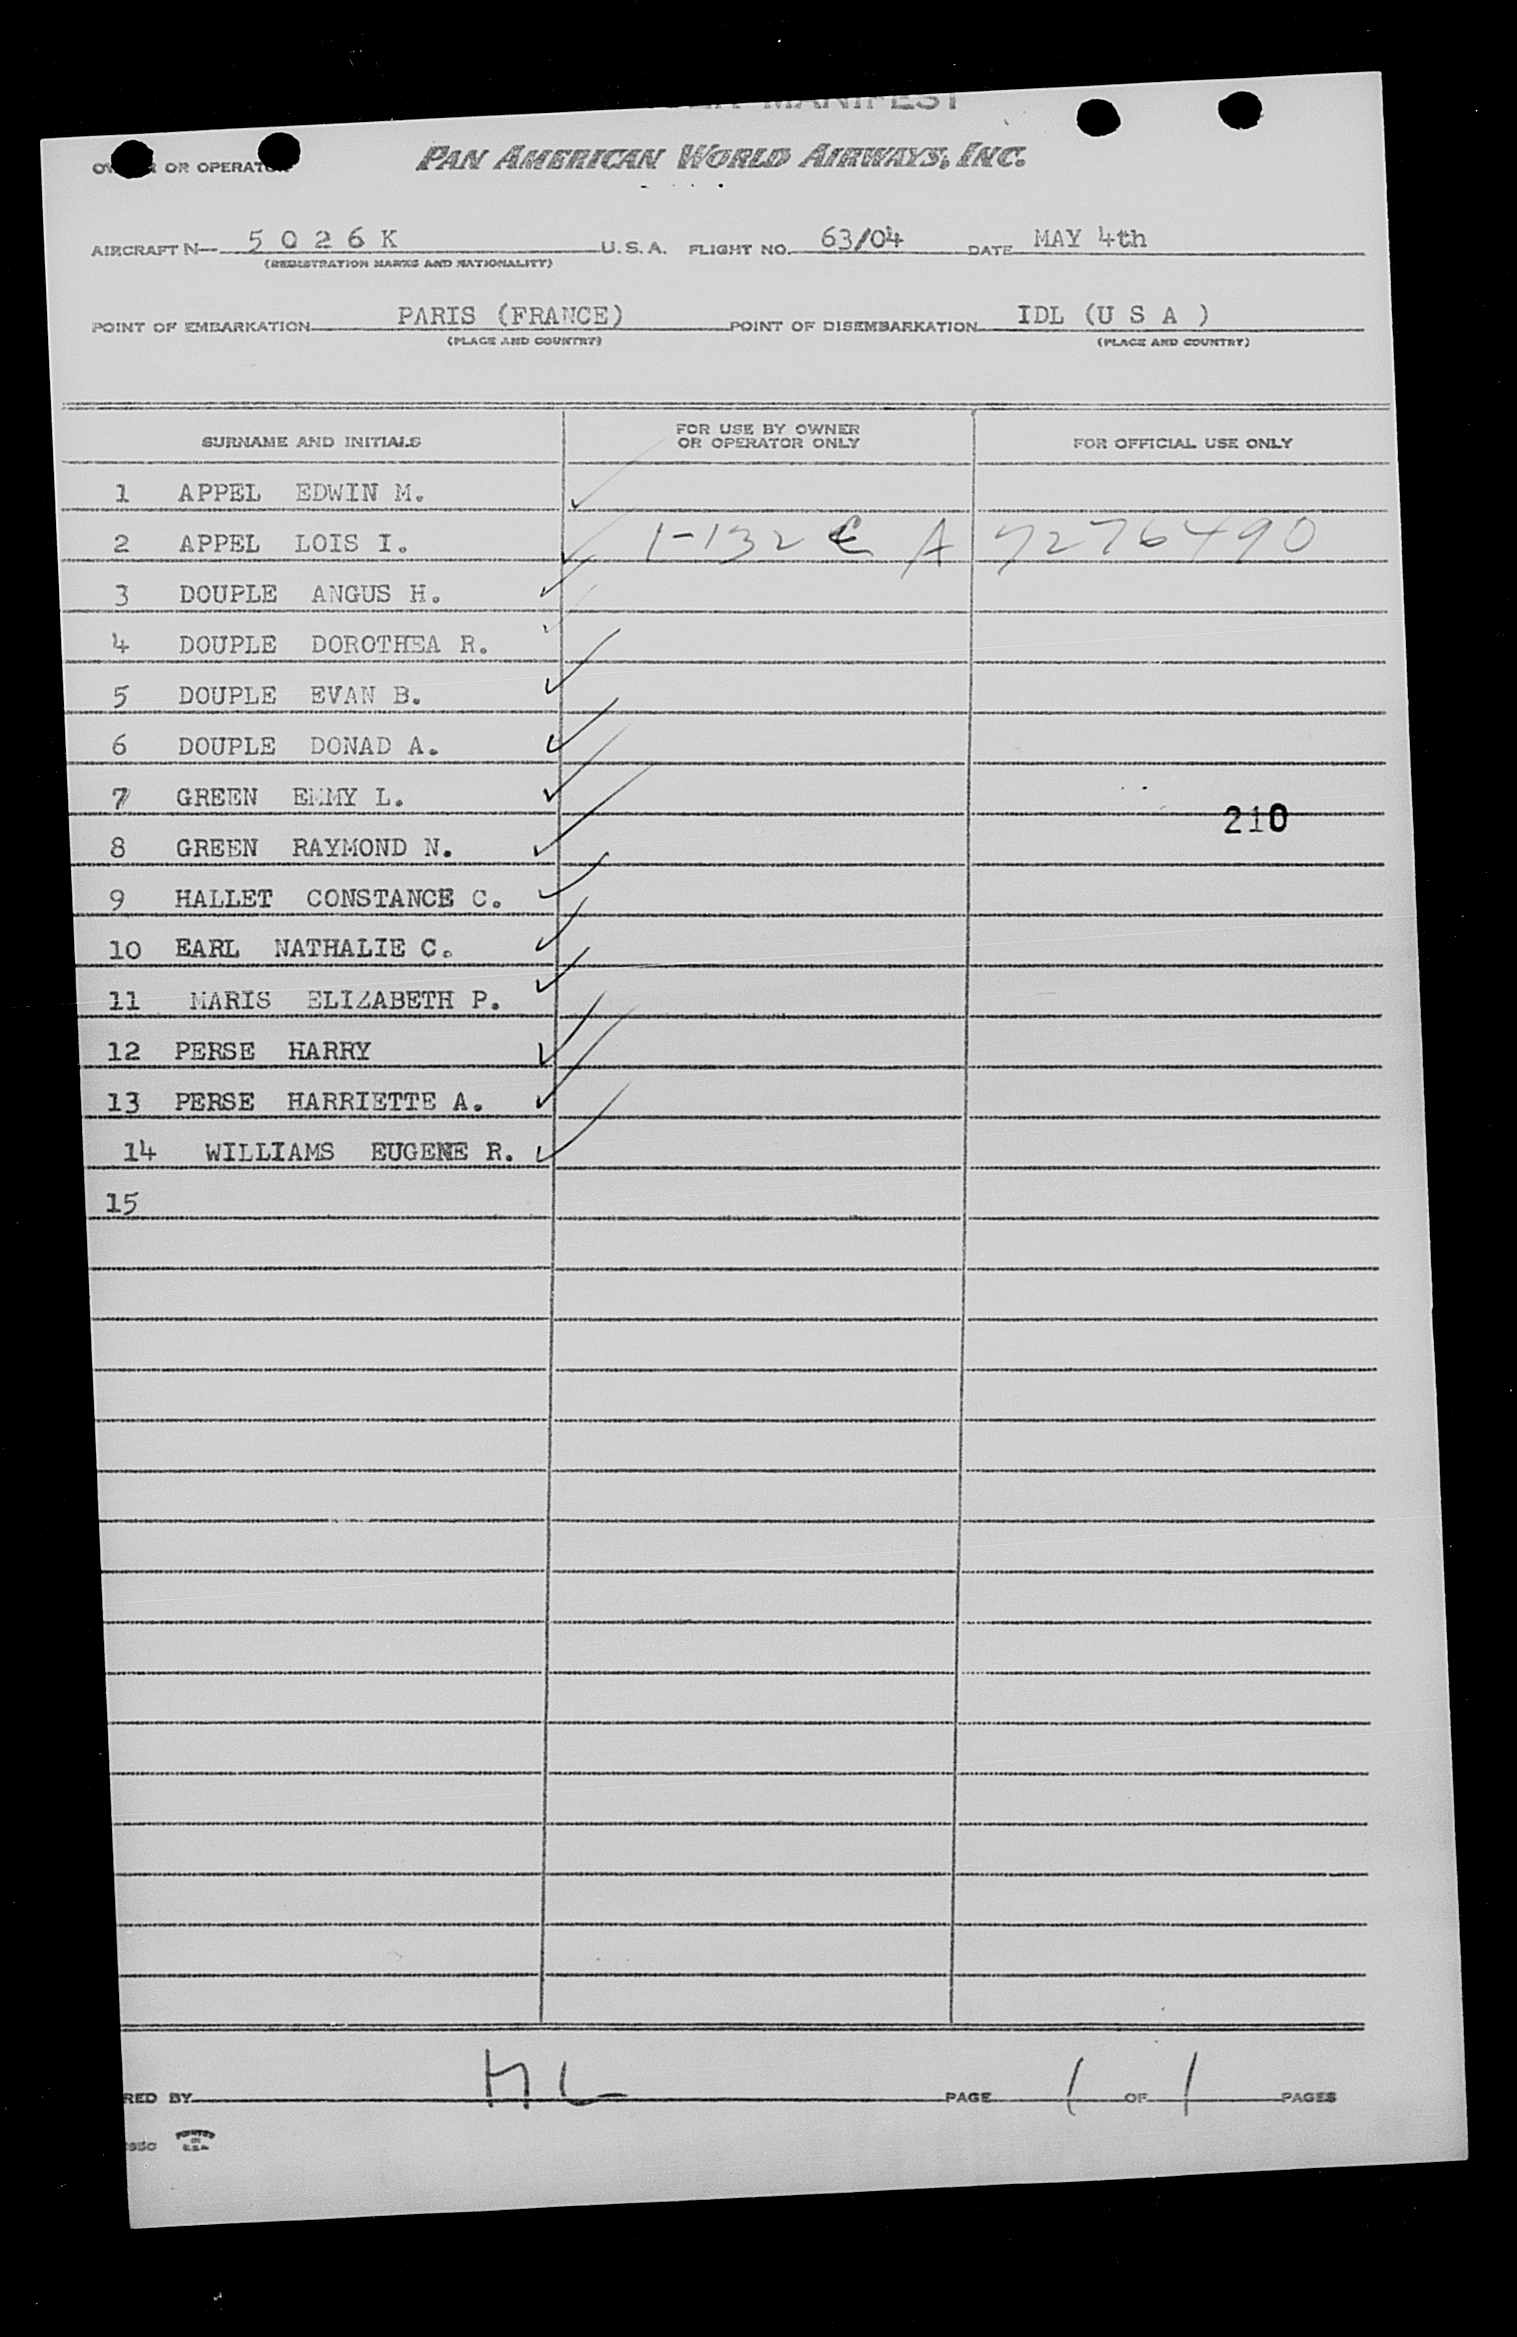 MANIFEST
OWNER OR OPERATOR PAN AMERICAN WORLD AIRWAYS, INC.
AIRCRAFT N— 5 0 2 6 K U. S. A. FLIGHT NO. 63/04 DATE MAY 4th
(REGISTRATION MARKS AND NATIONALITY)
POINT OF EMBARKATION PARIS (FRANCE) POINT OF DISEMBARKATION IDL (U S A )
(PLACE AND COUNTRY) (PLACE AND COUNTRY)
SURNAME AND INITIALS FOR USE BY OWNER OR OPERATOR ONLY FOR OFFICIAL USE ONLY
1 APPEL EDWIN M. ✓
2 APPEL LOIS I. ✓ 1-132 A 7276490
3 DOUPLE ANGUS H. ✓
4 DOUPLE DOROTHEA R. ✓
5 DOUPLE EVAN B. ✓
6 DOUPLE DONAD A. ✓
7 GREEN EMMY L. ✓
210
8 GREEN RAYMOND N. ✓
9 HALLET CONSTANCE C. ✓
10 EARL NATHALIE C. ✓
11 MARIS ELIZABETH P. ✓
12 PERSE HARRY ✓
13 PERSE HARRIETTE A. ✓
14 WILLIAMS EUGENE R. ✓
15
RED BY HL PAGE 1 OF 1 PAGES
PRINTED IN U.S.A.